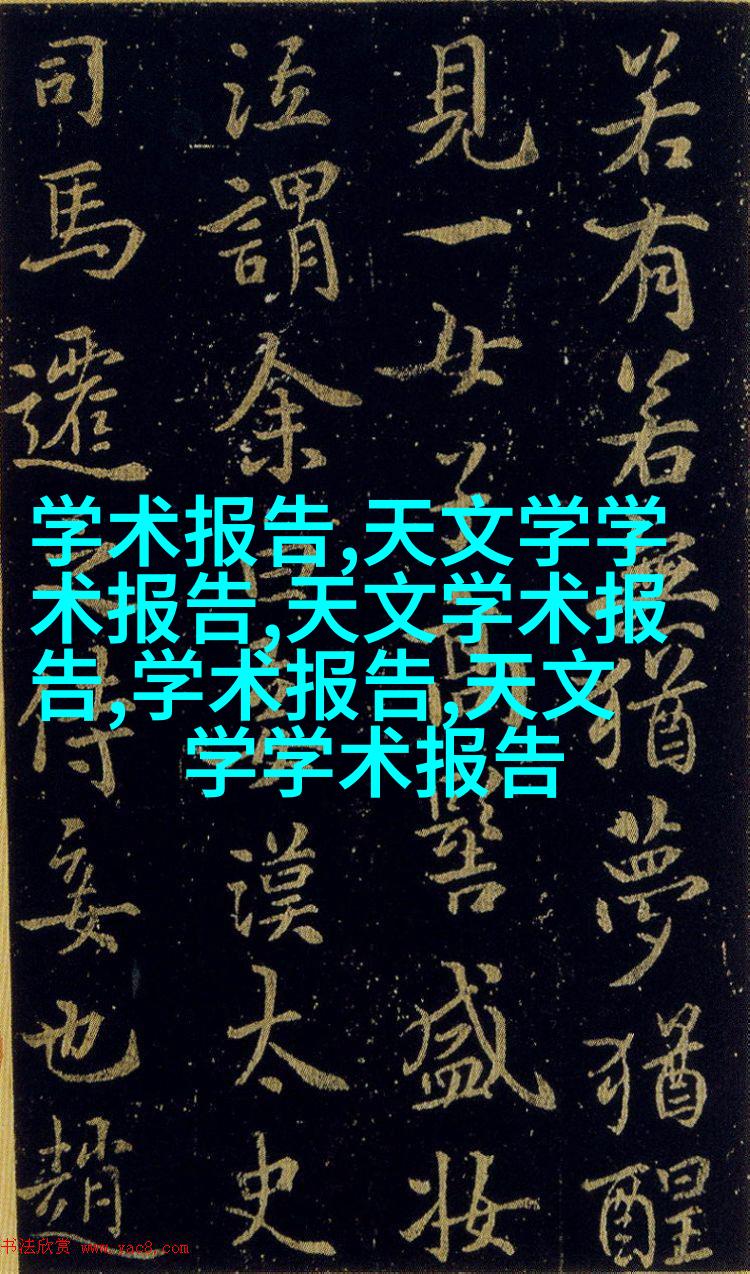 学术报告,天文学学
术报告,天文学术报
告,学术报告,天文
学学术报告
若有若無猶夢猶醒
見一女子高髻盛妝
泣謂余曰妾漢太史
司馬遷之侍妾也趙
书法欣赏 www.yac8.com